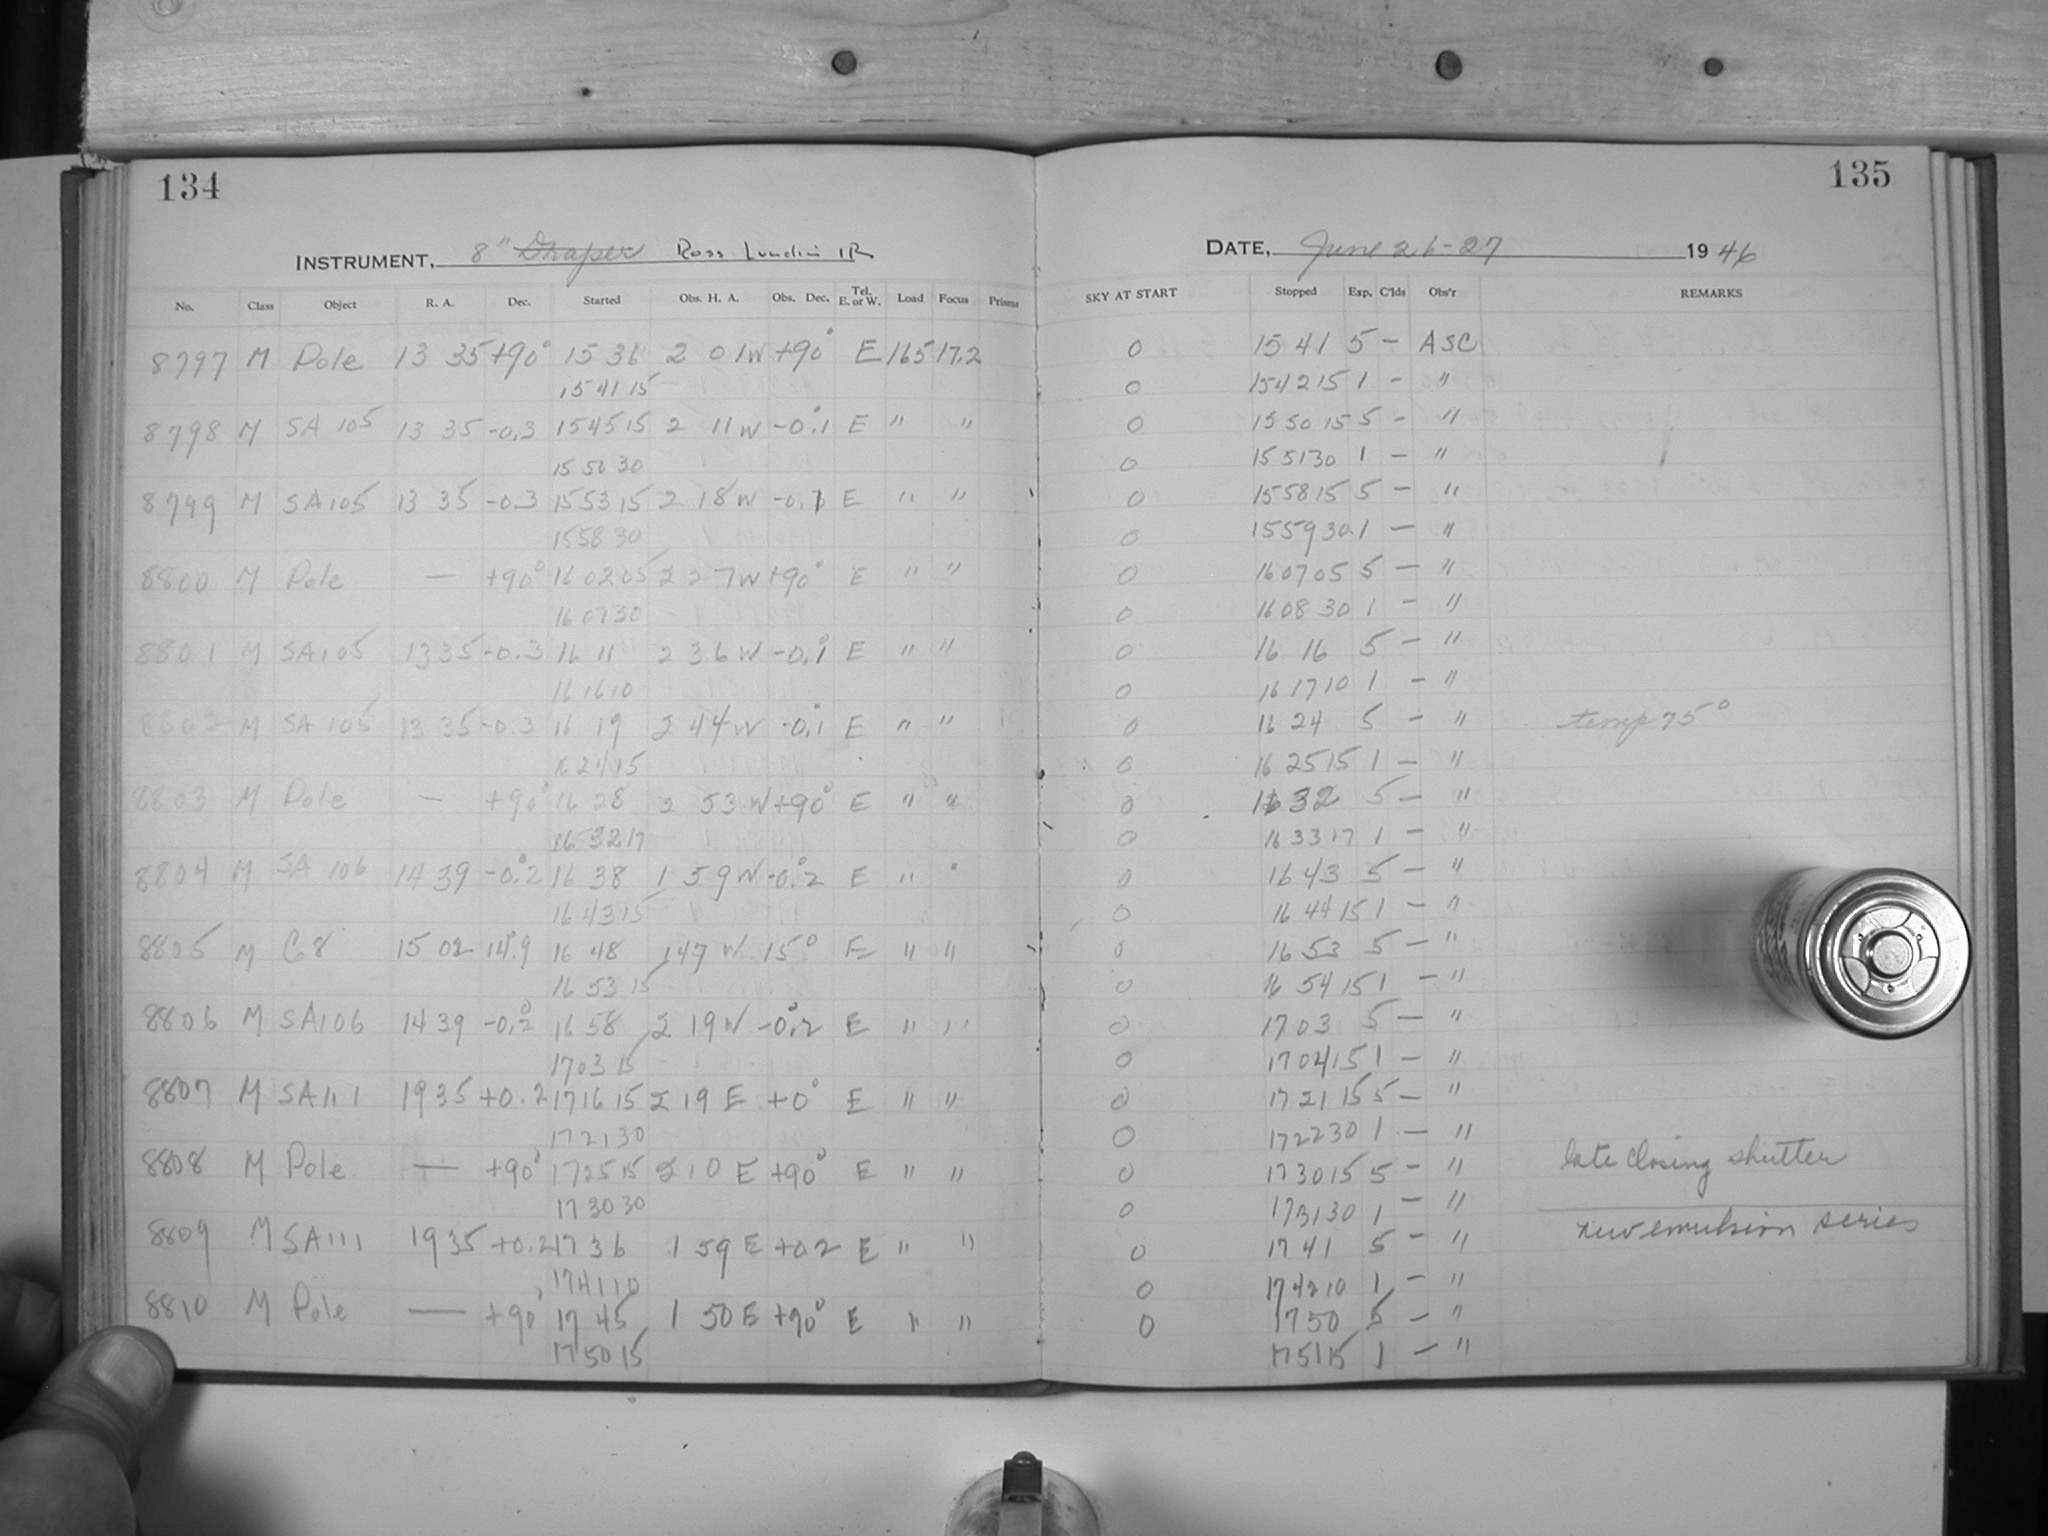 134
135
INSTRUMENT, 8" Draper Ross Lundin IR
DATE, June 26-27 1946
No. Class Object R. A. Dec. Started Obs. H. A. Obs. Dec. Tel. E. or W. Load Focus Prisms SKY AT START Stopped Exp. C'lds Obs'r REMARKS
8797 M Pole 13 35 +90° 15 36 2 01W +90° E 165 17.2 0 15 41 5 - ASC
15 41 15 0 15 42 15 1 - "
8798 M SA 105 13 35 -0.3 15 45 15 2 11W -0.°1 E " " 0 15 50 15 5 - "
15 50 30 0 15 51 30 1 - "
8799 M SA105 13 35 -0.3 15 53 15 2 18W -0.1 E " " 0 15 58 15 5 - "
15 58 30 0 15 59 30 1 - "
8800 M Pole — +90° 16 02 05 2 27W +90° E " " 0 16 07 05 5 - "
16 07 30 0 16 08 30 1 - "
8801 M SA105 13 35 -0.3 16 11 2 36W -0.°1 E " " 0 16 16 5 - "
16 16 10 0 16 17 10 1 - "
8802 M SA 105 13 35 -0.3 16 19 2 44W -0.°1 E " " 0 16 24 5 - " temp 75°
16 24 15 0 16 25 15 1 - "
8803 M Pole — +90° 16 28 2 53W +90° E " " 0 16 32 5 - "
16 32 17 0 16 33 17 1 - "
8804 M SA 106 14 39 -0.°2 16 38 1 59W -0.°2 E " " 0 16 43 5 - "
16 43 15 0 16 44 15 1 - "
8805 M C8 15 02 14.°9 16 48 1 47 W 15° E " " 0 16 53 5 - "
16 53 15 0 16 54 15 1 - "
8806 M SA106 14 39 -0.°2 16 58 2 19W -0.°2 E " " 0 17 03 5 - "
17 03 15 0 17 04 15 1 - "
8807 M SA111 19 35 +0.2 17 16 15 2 19 E +0° E " " 0 17 21 15 5 - "
17 21 30 0 17 22 30 1 - "
8808 M Pole — +90° 17 25 15 2 10 E +90° E " " 0 17 30 15 5 - " late closing shutter
17 30 30 0 17 31 30 1 - "
8809 M SA111 19 35 +0.2 17 36 1 59 E +0.2 E " " 0 17 41 5 - " new emulsion series
17 41 10 0 17 42 10 1 - "
8810 M Pole — +90° 17 45 1 50 E +90° E " " 0 17 50 5 - "
17 50 15 17 51 15 1 - "